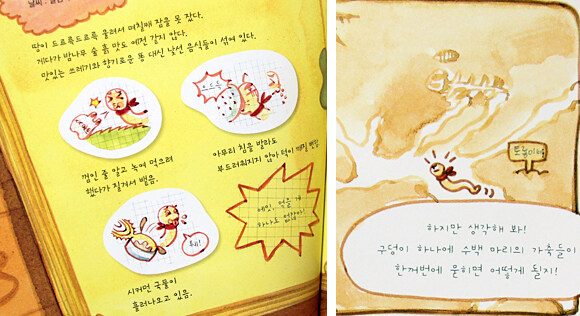 날씨
땅이 드르륵드르륵 울려서 며칠째 잠을 못 잤다.
게다가 밤나무 숲 흙 맛도 예전 같지 않다.
맛있는 쓰레기와 향기로운 똥 대신 낯선 음식들이 섞여 있다.
으드득
껌인 줄 알고 녹여 먹으려
했다가 질겨서 뱉음.
아무리 침을 발라도
부드러워지지 않아 턱이
에잇, 먹을 게
하나도 없잖아!
퉤퉤!
시커먼 국물이
흘러나오고 있음.
하지만 생각해 봐!
구덩이 하나에 수백 마리의 가축들이
한꺼번에 묻히면 어떻게 될지!